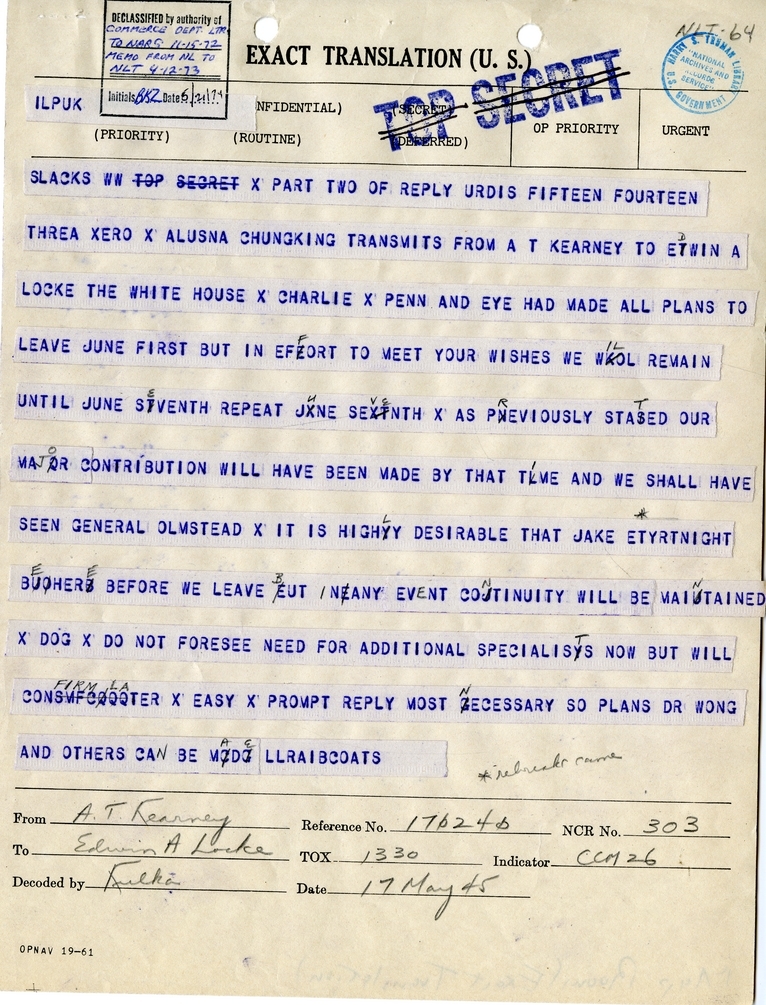 NLT-64
DECLASSIFIED by authority of
COMMERCE DEPT. LTR
TO NARS 11-15-72
MEMO FROM NL TO
NLT 4-12-73
Initials Date
HARRY S. TRUMAN LIBRARY
"NATIONAL ARCHIVES AND RECORDS SERVICE"
U.S. GOVERNMENT
EXACT TRANSLATION (U. S.)
TOP SECRET
ILPUK NFIDENTIAL) (SECRET)
(PRIORITY) (ROUTINE) (DEFERRED) OP PRIORITY URGENT
SLACKS WW TOP SECRET X PART TWO OF REPLY URDIS FIFTEEN FOURTEEN
THREA XERO X ALUSNA CHUNGKING TRANSMITS FROM A T KEARNEY TO EDWIN A
LOCKE THE WHITE HOUSE X CHARLIE X PENN AND EYE HAD MADE ALL PLANS TO
LEAVE JUNE FIRST BUT IN EFFORT TO MEET YOUR WISHES WE WILL REMAIN
UNTIL JUNE SEVENTH REPEAT JUNE SEVENTH X AS PREVIOUSLY STATED OUR
MAJOR CONTRIBUTION WILL HAVE BEEN MADE BY THAT TIME AND WE SHALL HAVE
SEEN GENERAL OLMSTEAD X IT IS HIGHLY DESIRABLE THAT JAKE ETYRTNIGHT *
BE HERE BEFORE WE LEAVE BUT IN ANY EVENT CONTINUITY WILL BE MAINTAINED
X DOG X DO NOT FORESEE NEED FOR ADDITIONAL SPECIALISTS NOW BUT WILL
CONFIRM LATER X EASY X PROMPT REPLY MOST NECESSARY SO PLANS DR WONG
AND OTHERS CAN BE MADE LLRAIBCOATS
From A.T. Kearney Reference No. NCR No. 303
To Edwin A Locke TOX 1330 Indicator CCM 26
Decoded by Kulka Date 17 May 45
OPNAV 19-61